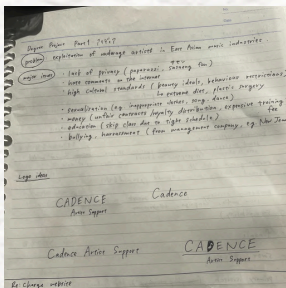 Urgent Project Part 1
problem exploitation of underage artists in East Asian music industries
major issues · lack of privacy (paparazzi, sasaeng fan)
· hate comments on the internet
· high cultural standards (beauty ideals, behaviour restrictions)
to extreme diet, plastic surgery
· sexualization (e.g. inappropriate clothes, song, dance)
· money (unfair contracts/royalty distribution, expensive training fee
· education (skip class due to tight schedule)
· bullying, harrassment (from management company, e.g. New Jeans
Logo ideas
CADENCE
Artist Support
Cadence
Cadence Artist Support
CADENCE
Artist Support
Re:Charge website